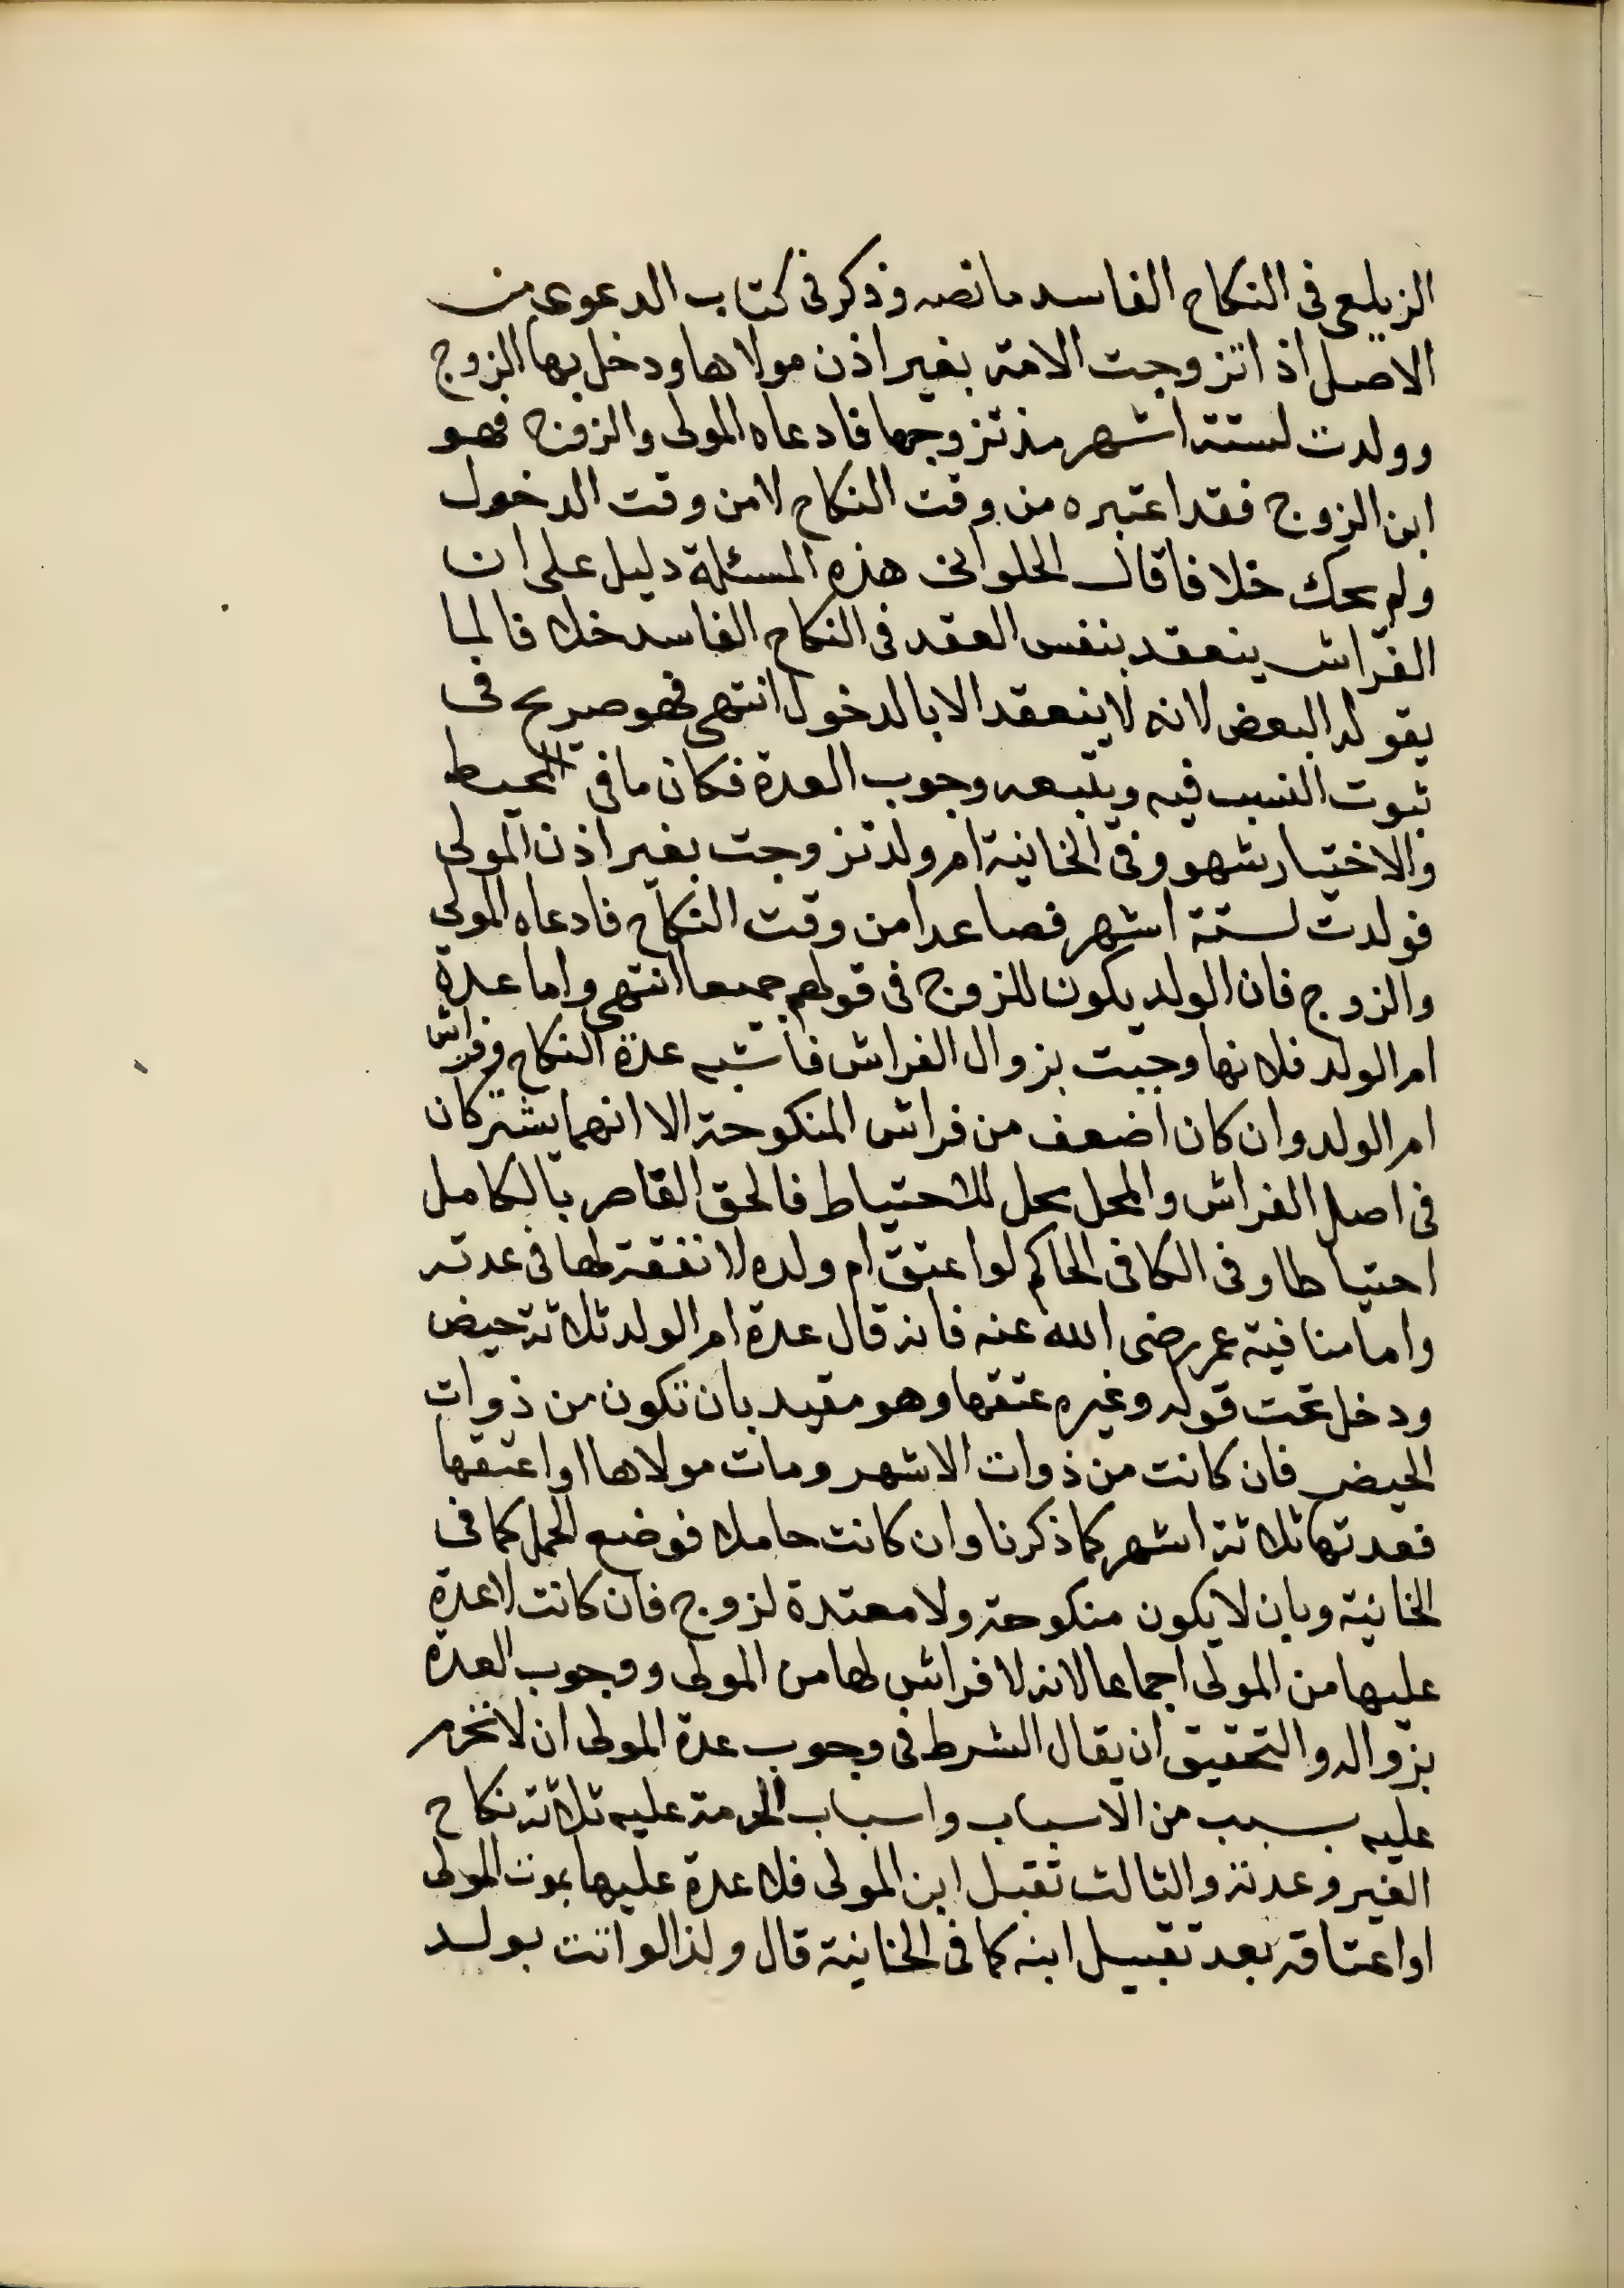 الزيلعى فى النكاح الفاسد مانصه وذكر فى كتاب الدعوى من
الاصل اذا تزوجت الامة بغير اذن مولاها ودخل بها الزوج
وولدت لستة اشهر مذ تزوجها فادعاه المولى والزوج فهو
ابن الزوج فقد اعتبره من وقت النكاح لا من وقت الدخول
ولم يحك خلافا قال الحلوانى هذه المسئلة دليل على ان
الفراش ينعقد بنفس العقد فى النكاح الفاسد خلافا لما
يقوله البعض لانه لا ينعقد الا بالدخول انتهى فهو صريح فى
ثبوت النسب فيه ويتبعه وجوب العدة فكان ما فى المحيط
والاختيار سهو وفى الخانية ام ولد تزوجت بغير اذن المولى
فولدت لستة اشهر فصاعدا من وقت النكاح فادعاه المولى
والزوج فان الولد يكون للزوج فى قولهم جميعا انتهى واما عدة
ام الولد فلانها وجبت بزوال الفراش فاشبه عدة النكاح وفراش
ام الولد وان كان اضعف من فراش المنكوحة الا انهما يشتركان
فى اصل الفراش والمحل محل للاحتياط فالحق القاصر بالكامل
احتياطا وفى الكافى الحاكم لو اعتق ام ولده لا نفقة لها فى عدته
واما منا فيه عمر رضى الله عنه فانه قال عدة ام الولد ثلاثة حيض
ودخل تحت قوله وغيره عتقها وهو مقيد بان تكون من ذوات
الحيض فان كانت من ذوات الاشهر ومات مولاها او اعتقها
فعدتها ثلاثة اشهر كما ذكرنا وان كانت حاملا فوضع الحمل كما فى
الخانية وبان لا يكون منكوحة ولا معتدة لزوج فان كانت لا عدة
عليها من المولى اجماعا لانه لا فراش لها من المولى ووجوب العدة
بزواله والتحقيق ان يقال الشرط فى وجوب عدة المولى ان لا تحرم
عليه بسبب من الاسباب واسباب الحرمة عليه ثلاثة نكاح
الغير وعدته والثالث تقبل ابن المولى فلا عدة عليها بموت المولى
او اعتاقه بعد تقبيل ابنه كما فى الخانية قال ولذا لو اتت بولد